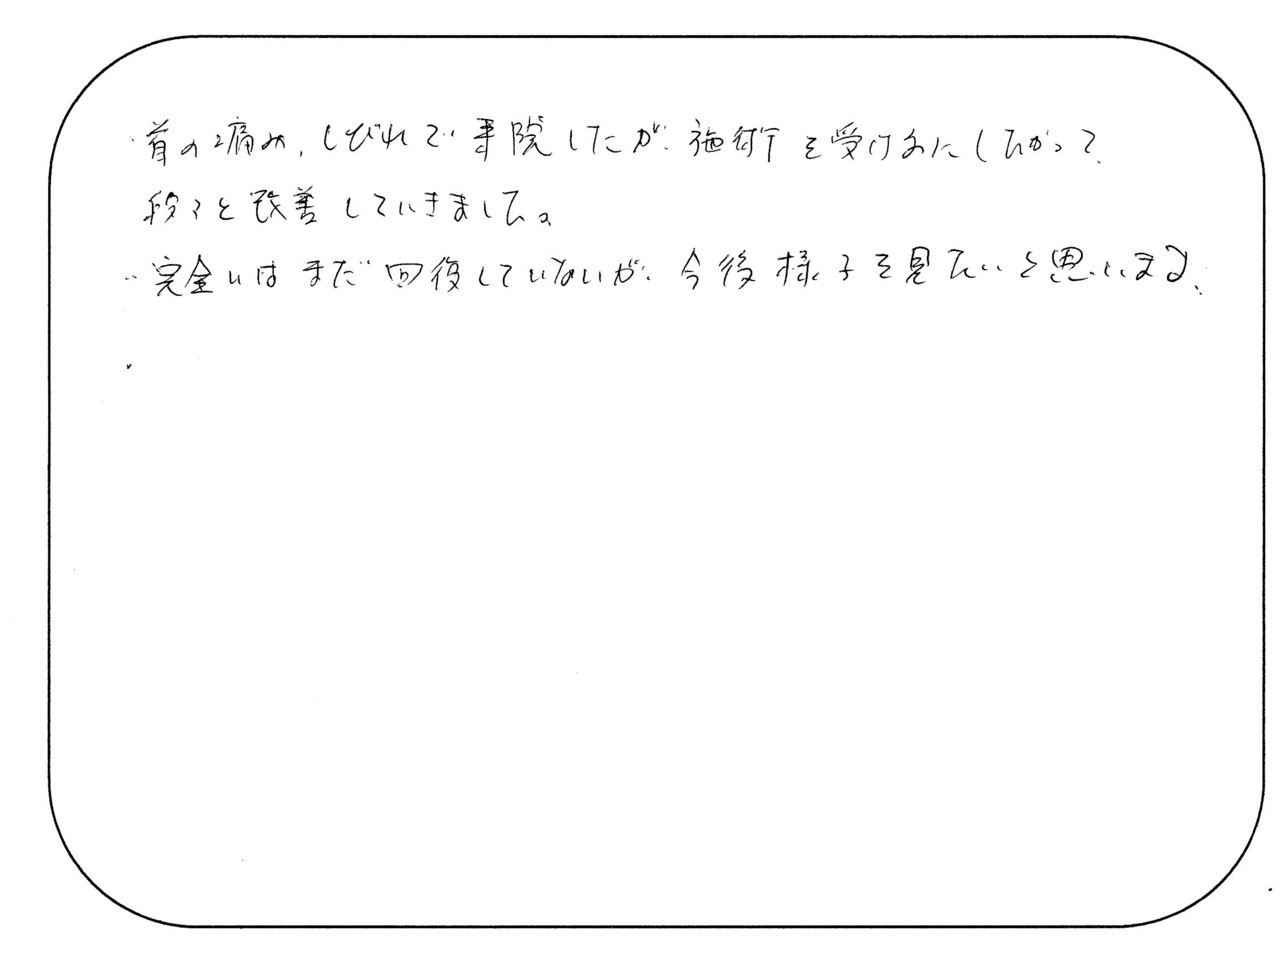 ・首の痛み、しびれで来院したが、施術を受けるにしたがって、
段々と改善していきました。
・完全にはまだ回復していないが、今後様子を見たいと思います。